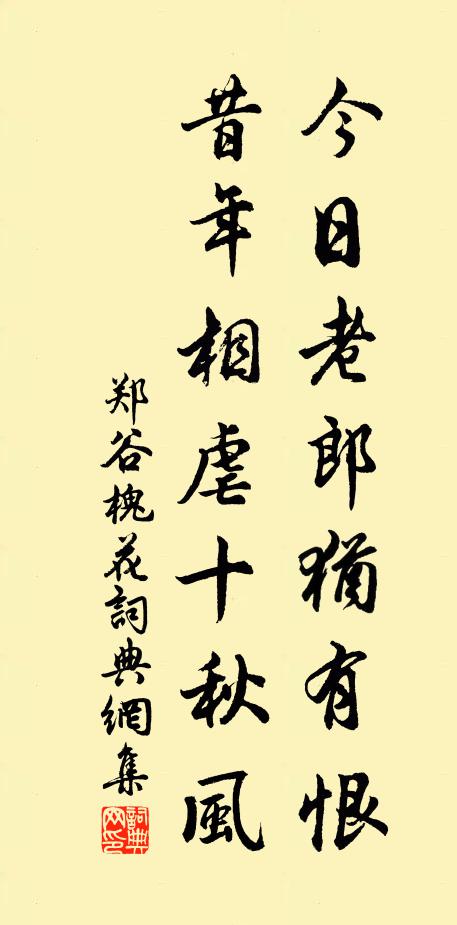 今日老郎猶有恨
昔年相虐十秋風
郑谷槐花詞典網集
詞典網印